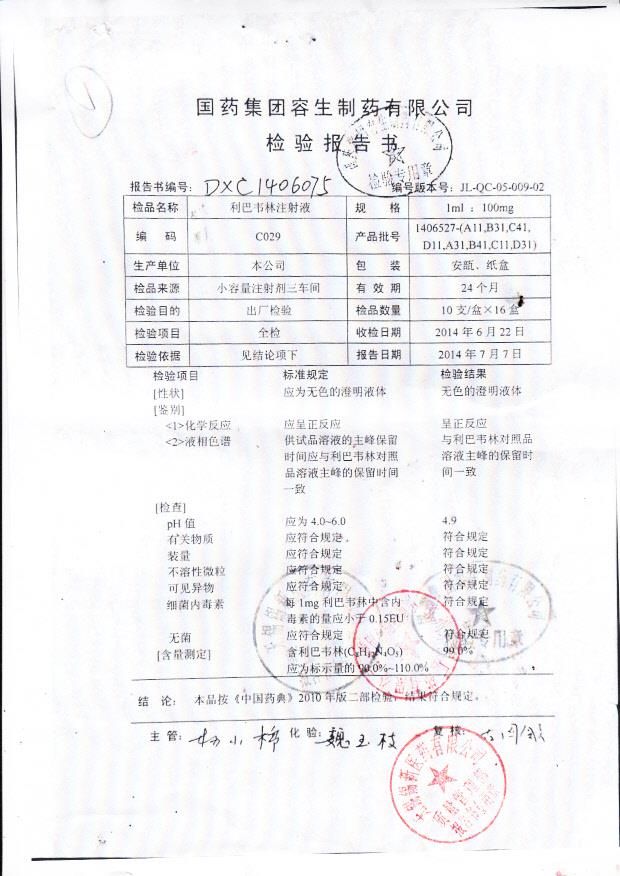 1
国药集团容生制药有限公司
检验报告书
检验专用章
报告书编号: DXC1406075 编号版本号: JL-QC-05-009-02
检品名称 利巴韦林注射液 规 格 1ml : 100mg
编 码 C029 产品批号 1406527-(A11,B31,C41,
D11,A31,B41,C11,D31)
生产单位 本公司 包 装 安瓿、纸盒
检品来源 小容量注射剂三车间 有 效 期 24 个月
检验目的 出厂检验 检品数量 10 支/盒×16 盒
检验项目 全检 收检日期 2014 年 6 月 22 日
检验依据 见结论项下 报告日期 2014 年 7 月 7 日
检验项目 标准规定 检验结果
[性状] 应为无色的澄明液体 无色的澄明液体
[鉴别]
<1>化学反应 应呈正反应 呈正反应
<2>液相色谱 供试品溶液的主峰保留 与利巴韦林对照品
时间应与利巴韦林对照 溶液主峰的保留时
品溶液主峰的保留时间 间一致
一致
[检查]
pH 值 应为 4.0~6.0 4.9
有关物质 应符合规定 符合规定
装量 应符合规定 符合规定
不溶性微粒 应符合规定 符合规定
可见异物 应符合规定 符合规定
细菌内毒素 每 1mg 利巴韦林中含内 符合规定
毒素的量应小于 0.15EU
无菌 应符合规定 符合规定
[含量测定] 含利巴韦林(C₈H₁₂N₄O₅) 99.0%
应为标示量的 90.0%~110.0%
结 论: 本品按《中国药典》2010 年版二部检验,结果符合规定。
主管: 小 化验: 魏玉枝 复核:
医药有限公司